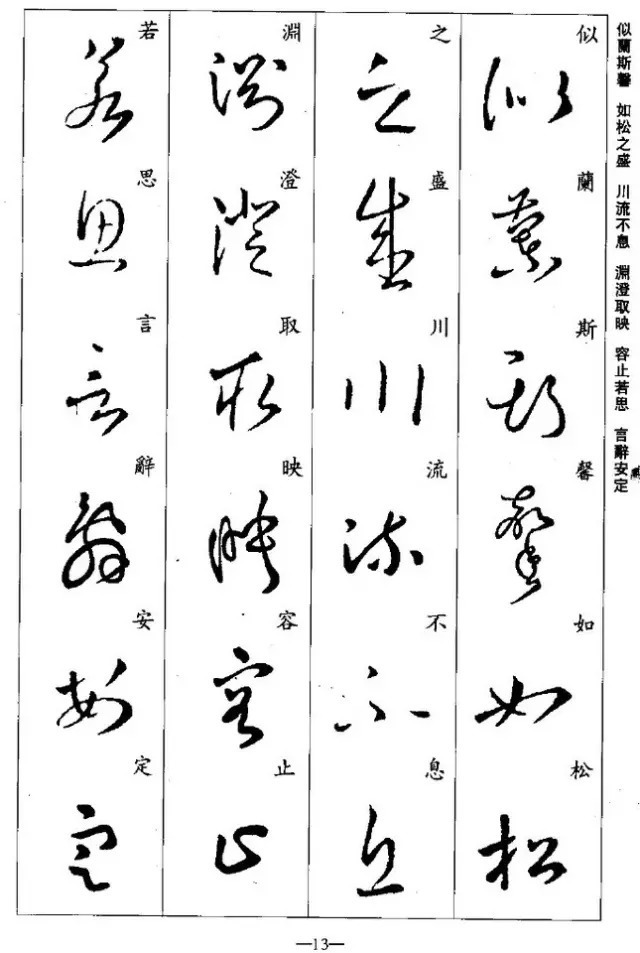 似蘭斯馨 如松之盛 川流不息 淵澄取映 容止若思 言辭安定
似蘭斯馨如松
之盛川流不息
淵澄取映容止
若思言辭安定
—13—